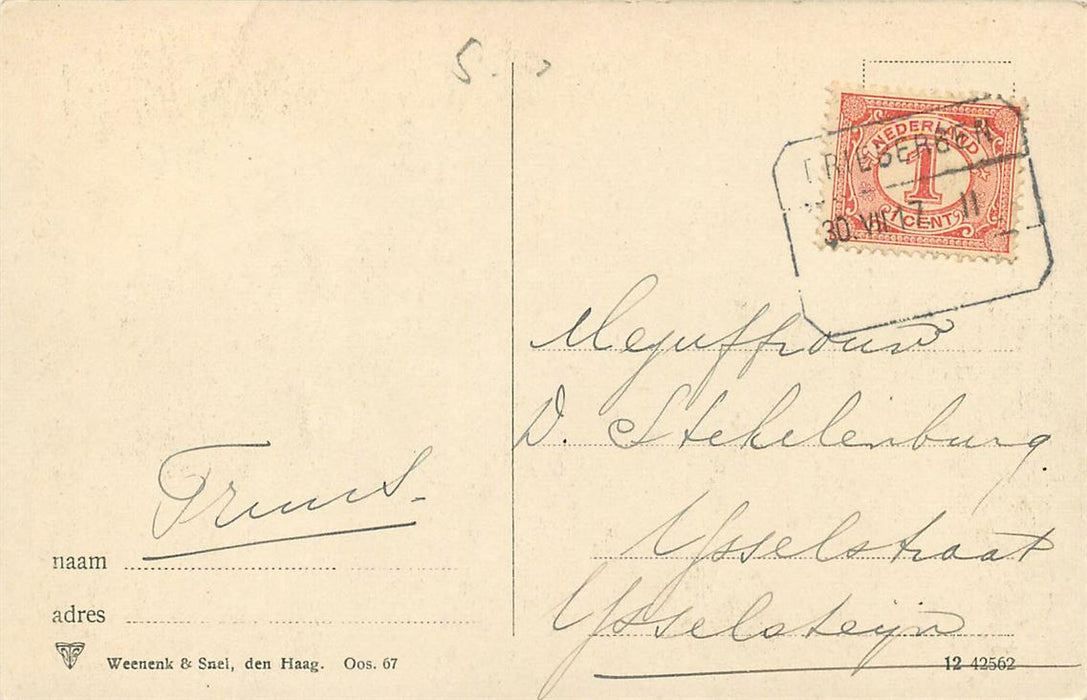 NEDERLAND
1
1 CENT
DRIEBERGEN
30. VII 17 11
Mejuffrouw
D. Stekelenburg
Ysselstraat
Ysselsteijn
Truus.
naam
adres
Weenenk & Snel, den Haag. Oos. 67
12 42562